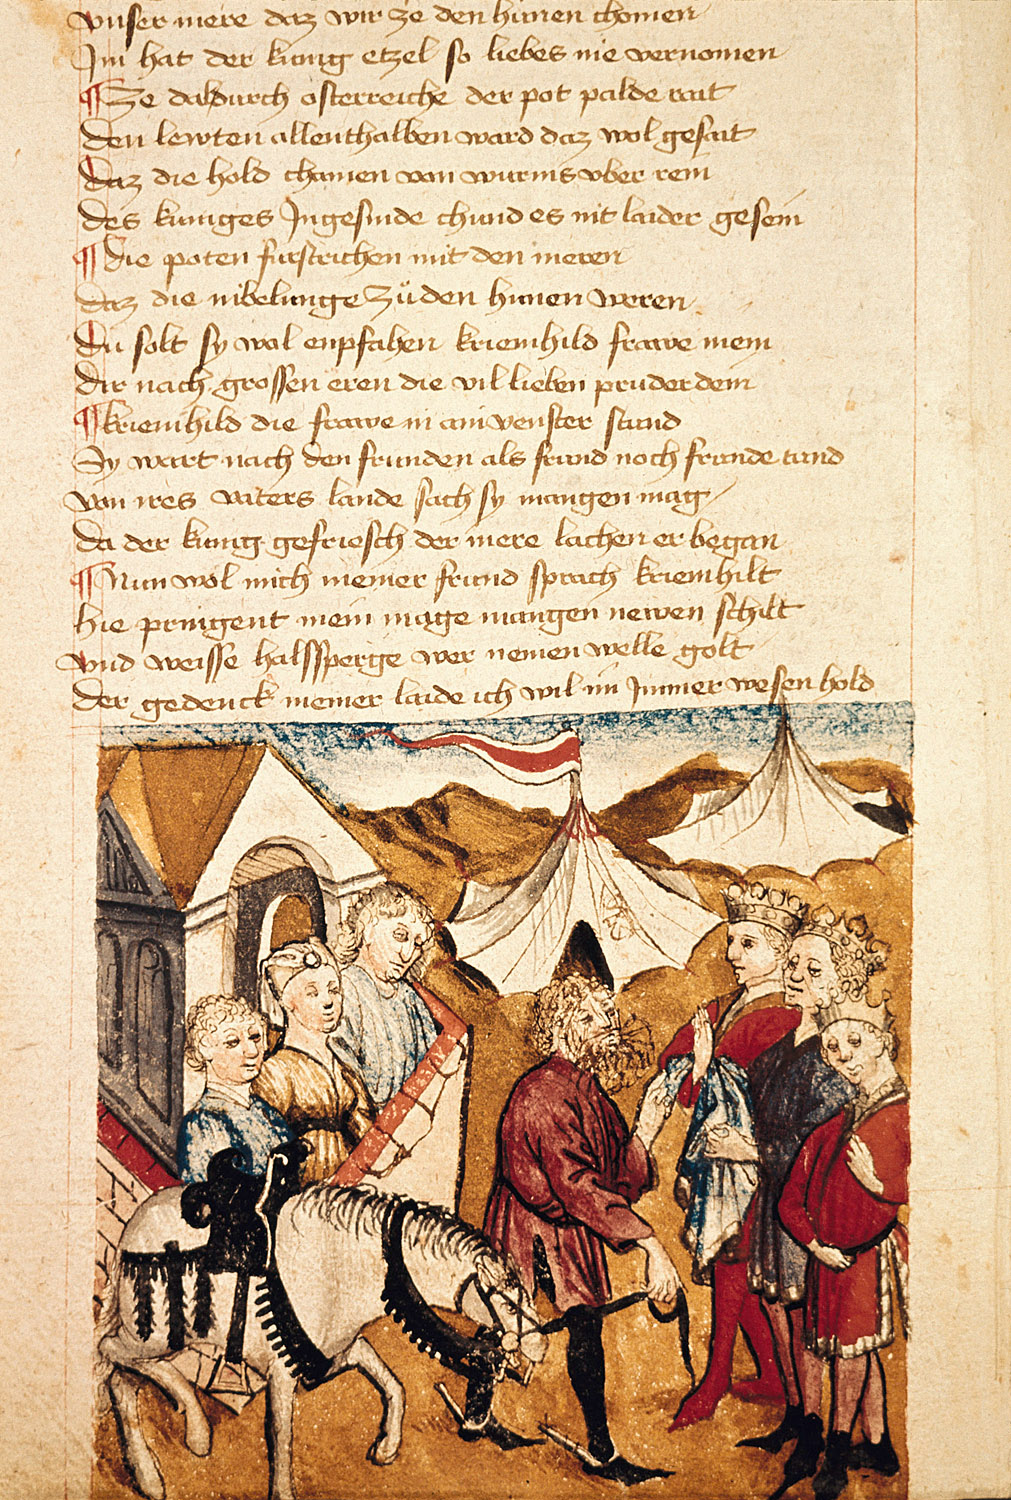 vnser mere daz wir ze den hunen chomen
Im hat der kunig etzel so liebes nie vernomen
¶ Ze dal durch osterreiche der pot palde rait
den lewten allenthalben ward daz wol gesait
daz die hold chamen von wurms vber rein
des kuniges Ingesinde chund es nit laider gesein
¶ die poten furstrichen mit den meren
daz die nibelunge zů den hunen weren
du solt sy wol enpfahen kriemhild frawe mein
dir nach grossen eren die vil lieben pruder dein
¶ kriemhild die frawe in ain venster stund
Sy wart nach den frunden als frund noch frunde tund
von ires vaters lande sach sy mangen mag
da der kunig gefriesch der mere lachen er began
¶ Nun wol mich meiner frund sprach kriemhilt
hie pringent mein mage mangen newen schilt
vnd weisse halssperge wer nemen welle golt
der gedenck meiner laide ich wil im Immer wesen hold